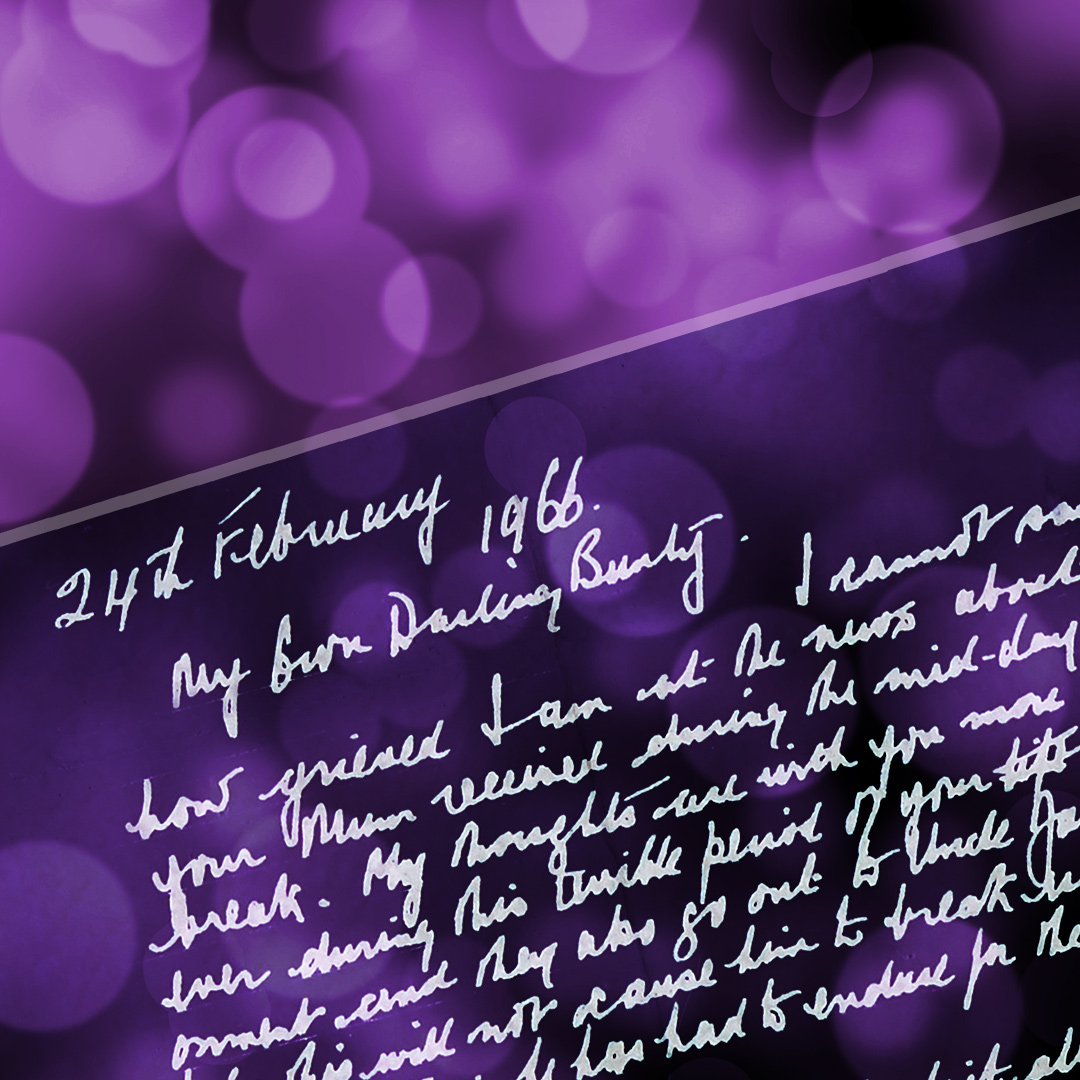 24th February 1966.
My Own Darling Bunty. I cannot
how grieved I am at the news about
your Mum received during the mid-day
break. My thoughts are with you more
ever during this terrible period of your
and they also go out to Uncle
this will not cause him to break
has had to endure for the
it all